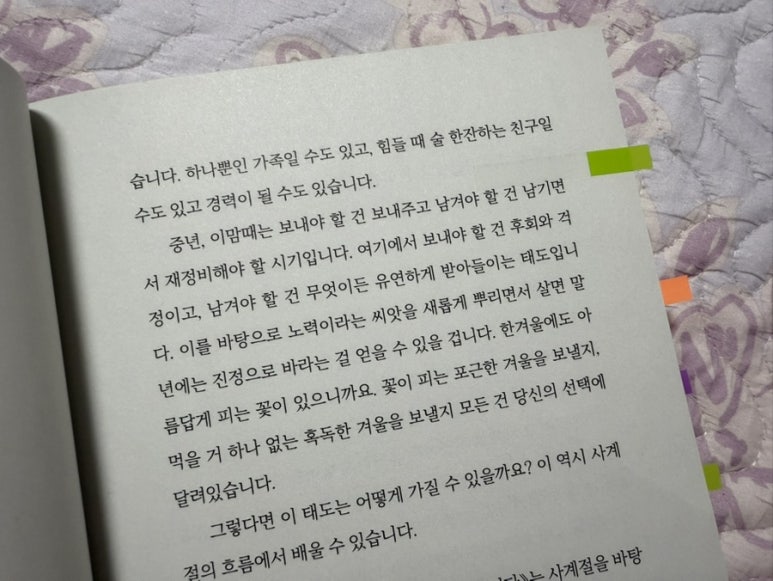 습니다. 하나뿐인 가족일 수도 있고, 힘들 때 술 한잔하는 친구일
수도 있고 경력이 될 수도 있습니다.
중년, 이맘때는 보내야 할 건 보내주고 남겨야 할 건 남기면
서 재정비해야 할 시기입니다. 여기에서 보내야 할 건 후회와 걱
정이고, 남겨야 할 건 무엇이든 유연하게 받아들이는 태도입니
다. 이를 바탕으로 노력이라는 씨앗을 새롭게 뿌리면서 살면 말
년에는 진정으로 바라는 걸 얻을 수 있을 겁니다. 한겨울에도 아
름답게 피는 꽃이 있으니까요. 꽃이 피는 포근한 겨울을 보낼지,
먹을 거 하나 없는 혹독한 겨울을 보낼지 모든 건 당신의 선택에
달려있습니다.
그렇다면 이 태도는 어떻게 가질 수 있을까요? 이 역시 사계
절의 흐름에서 배울 수 있습니다.
는 사계절을 바탕